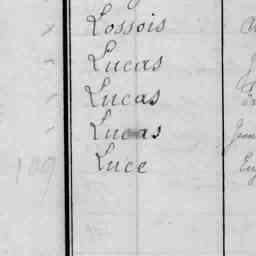 Lossois
Lucas
Lucas
Lucas
109 Luce